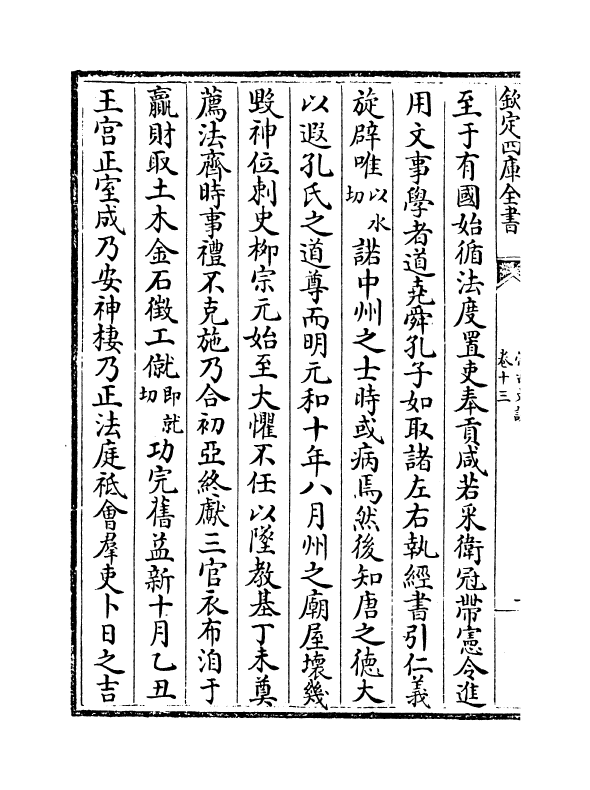 欽定四庫全書
卷十三
至于有國始循法度置吏奉貢咸若采衛冠帶憲令進
用文事學者道堯舜孔子如取諸左右執經書引仁義
旋辟唯以水切諾中州之士時或病焉然後知唐之徳大
以遐孔氏之道尊而明元和十年八月州之廟屋壞幾
毁神位刺史柳宗元始至大懼不任以墜教基丁未奠
薦法齊時事禮不克施乃合初亞終獻三官衣布洎于
贏財取土木金石徴工僦即就切功完舊益新十月乙丑
王宫正室成乃安神棲乃正法庭祗會羣吏卜日之吉